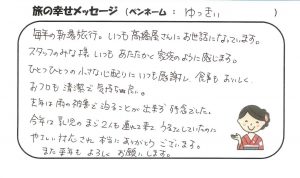 旅の幸せメッセージ (ペンネーム: ゆっきぃ )
毎年の新潟旅行。いつも髙橋屋さんにお世話になっています。
スタッフのみな様、いつもあたたかく家族のように感じます。
ひとつひとつの小さな心配りにいつも感謝し、食事もおいしく
おフロも清潔で気持ち良い。
去年は雨の被害で泊ることが出来ず残念でした。
今年は乳児のまご2人も連れて来て うるさくしていたのに
やさしい対応され 本当にありがとうございます。
また来年も よろしくお願いします。